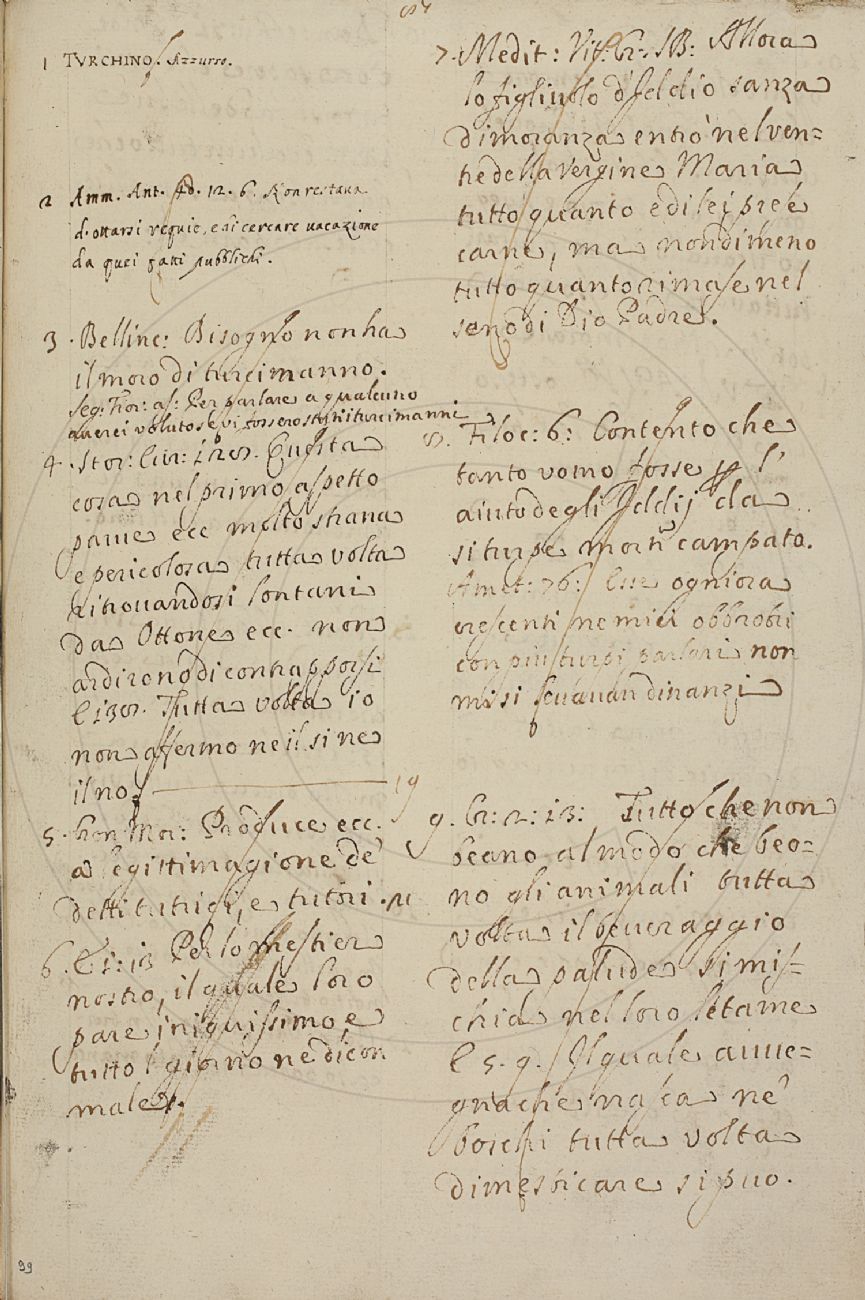 84
1 TVRCHINO. Azzurro.
2 Amm. Ant. 12. 6. Non restava
d'ottarsi requie, e di cercare vacazione
da quei fatti pubblichi.
3. Bellinc: Bisogno non ha
il moro di turcimanno.
Seg: Fior: as: Per parlare a qualcuno
averei voluto se vi fossero stati i turcimanni
4. Stor: Eur: 128. Questa
cosa nel primo aspetto
parue ecc molto strana
e pericolosa tutta volta
ritrouandosi lontani
da Ottone ecc. non
ardirono di contrapporsi
E 130. Tutta volta io
non affermo ne il si ne
il no. 19
5. Produce ecc.
a legittimagione de'
detti tutrici, e tutori. 11
6. E 1: 13 Per lo mestier
nostro, il quale loro
pare iniquissimo e
tutto 'l giorno ne dicon
male.
7. Medit: Vit: Cr: SB: Allora
lo figliuolo d'Iddio sanza
dimoranza entrò nel ven=
tre della Vergine Maria
tutto quanto e di lei prée
carne, ma nondimeno
tutto quanto rimase nel
seno di Dio Padre.
8. Filoc: 6: Contento che
tanto vomo fosse l'
aiuto degli Iddij da
si turpe morte campato.
Amet: 76: ogniora
crescenti nemici obbrobri
con piu turpi parlari non
mi si leuauan dinanzi
9. Cr: 2: 13: Tutto che non
beano al modo che beo=
no gli animali tutta
volta il beueraggio
della palude si mis=
chia nel loro letame
E 5. 9. Il quale auue=
gnache nasca ne'
boschi tutta volta
dimesticare si puo.
99